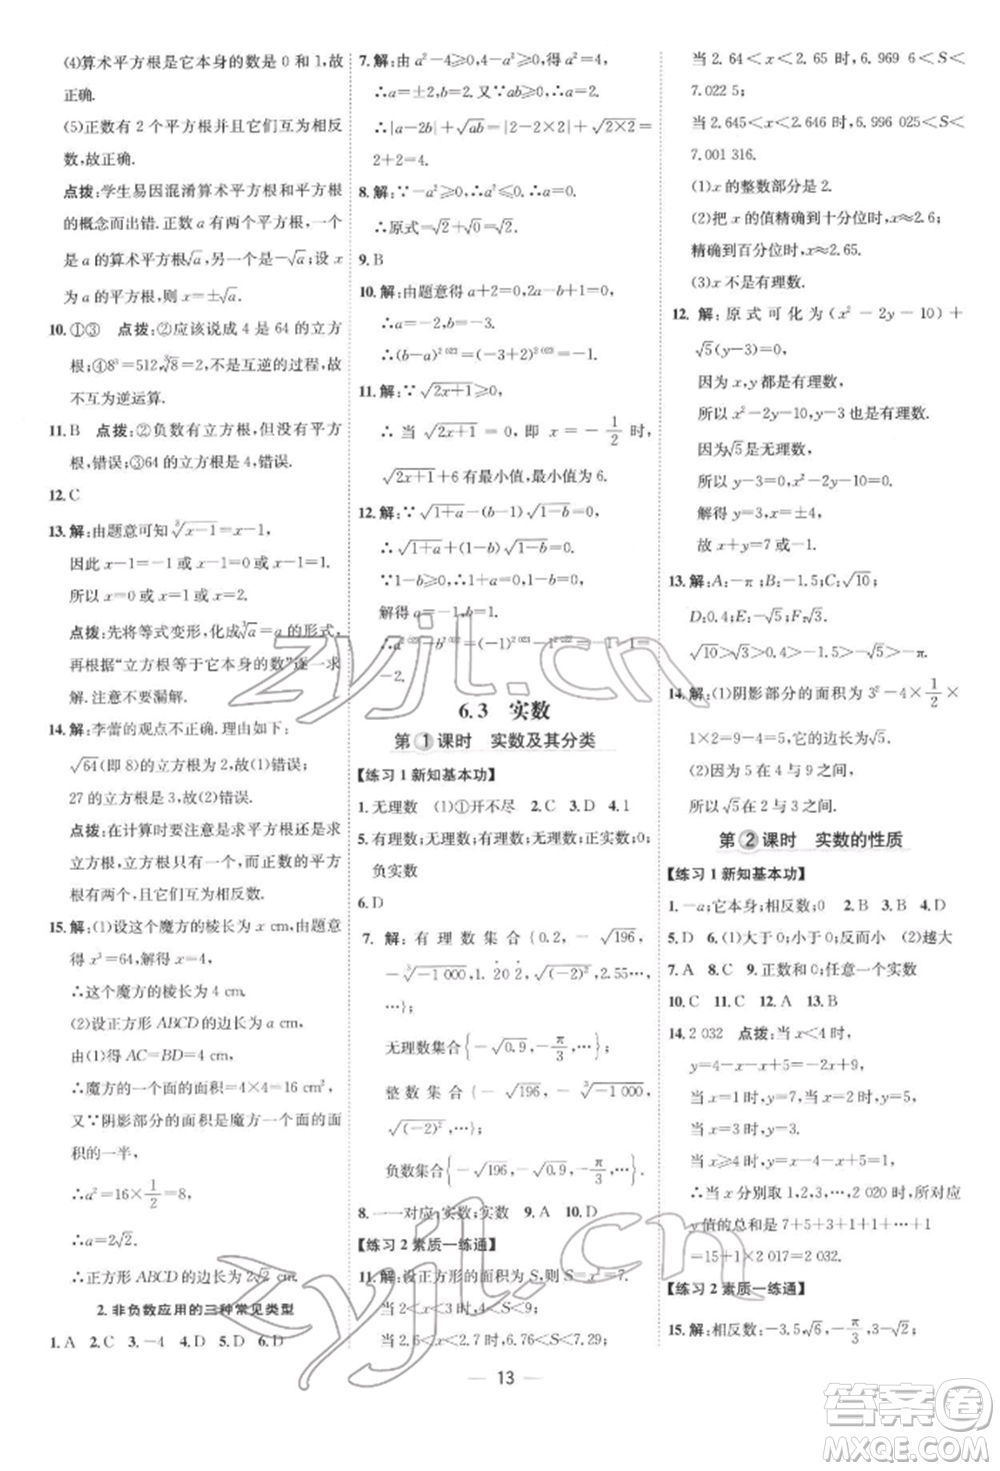 (4)算术平方根是它本身的数是 0 和 1,故
正确.
(5)正数有 2 个平方根并且它们互为相反
数,故正确.
点拨:学生易因混淆算术平方根和平方根
的概念而出错.正数 a 有两个平方根,一个
是 a 的算术平方根√a,另一个是-√a;设 x
为 a 的平方根,则 x=±√a.
10.①③ 点拨:②应该说成 4 是 64 的立方
根;④8³=512,∛8=2,不是互逆的过程,故
不互为逆运算.
11.B 点拨:②负数有立方根,但没有平方根,
错误;③64 的立方根是 4,错误.
12.C
13.解:由题意可知∛(x-1)=x-1,
因此 x-1=-1 或 x-1=0 或 x-1=1.
所以 x=0 或 x=1 或 x=2.
点拨:先将等式变形,化成∛a=a 的形式,
再根据“立方根等于它本身的数”逐一求
解.注意不要漏解.
14.解:李蕾的观点不正确.理由如下:
√64(即 8)的立方根是 2,故(1)错误;
27 的立方根是 3,故(2)错误.
点拨:在计算时要注意是求平方根还是求
立方根,立方根只有一个,而正数的平方
根有两个,它们互为相反数.
15.解:(1)设这个魔方的棱长为 x cm,由题意
得 x³=64,解得 x=4.
∴这个魔方的棱长为 4 cm.
(2)设正方形 ABCD 的边长为 a cm,
由(1)得 AC=BD=4 cm,
∴魔方的一个面的面积=4×4=16 cm²
又∵阴影部分的面积是魔方的一个面的面
积的一半,
∴a²=16×1/2=8,
∴a=2√2.
∴正方形 ABCD 的边长为 2√2 cm.
2.非负数应用的三种常见类型
1.A 2.C 3.-4 4.D 5.D 6.D
7.解:由 a²-4≥0,4-a²≥0,得 a²=4,
∴a=±2,b=2.又∵ab≥0,∴a=2.
∴|a-2b|+√ab=|2-2×2|+√(2×2)=
2+2=4.
8.解:∵-a²≥0,∴a²≤0,∴a=0.
∴原式=√2+√1=√2+1.
9.B
10.解:由题意得 a+2=0,b+3=0,
∴a=-2,b=-3.
∴(b-a)²⁰²³=(-3+2)²⁰²³=-1.
11.解:∵√(2x+1)≥0,
∴当√(2x+1)=0,即 x=-1/2时,
√(2x+1)+6 有最小值,最小值为 6.
12.解:∵√(1+a)-(b-1)√(1-b)=0,
∴√(1+a)+(1-b)√(1-b)=0.
∵1-b≥0,∴1+a=0,1-b=0,
解得 a=-1,b=1.
∴a²⁰²³-b²⁰²³=(-1)²⁰²³-1²⁰²³=-1-1
=-2.
6.3 实数
第1课时 实数及其分类
【练习 1 新知基本功】
1.无理数 (1)①开不尽 2.C 3.C 4.1
5.有理数;无理数;有理数;无理数;正实数;0;
负实数
6.D
7.解:有理数集合{0.2,-√196,
∛(-1 000),1.2̇0 2̇,√(-2)²,2.55…,
…};
无理数集合{-√0.9,-π/3,…};
整数集合{-√196,∛(-1 000),
√(-2)²,…};
负数集合{-√196,-√0.9,-π/3,…}.
8.一一对应;实数;实数 9.A 10.D
【练习 2 素质一练通】
11.解:设正方形的面积为 S,则 S=7.
当 2<x<3 时,4<S<9;
当 2.6<x<2.7 时,6.76<S<7.29;
当 2.64<x<2.65 时,6.969 6<S<
7.022 5;
当 2.645<x<2.646 时,6.996 025<S<
7.001 316.
(1)x 的整数部分是 2.
(2)把 x 的值精确到十分位时,x≈2.6;
精确到百分位时,x≈2.65.
(3)x 不是有理数.
12.解:原式可化为(x²-2y-10)+
√5(y-3)=0.
因为 x,y 都是有理数,
所以 x²-2y-10,y-3 也是有理数.
因为√5是无理数,
所以 y-3=0,x²-2y-10=0.
解得 y=3,x=±4.
故 x+y=7 或-1.
13.解:A:-π;B:-1.5;C:√10;
D:0.4;E:-√5;F:√3.
√10>√3>0.4>-1.5>-√5>-π.
14.解:(1)阴影部分的面积为 3²-4×1/2×
1×2=9-4=5,边长为√5.
(2)因为 5 在 4 与 9 之间,
所以√5在 2 与 3 之间.
第2课时 实数的性质
【练习 1 新知基本功】
1.-a;它本身;相反数;0 2.B 3.B 4.D
5.D 6.(1)大于 0;小于 0;反而小 (2)越大
7.A 8.C 9.正数和 0;任意一个实数
10.C 11.C 12.A 13.B
14.2 032 点拨:当 x<4 时,
y=4-x-x+5=-2x+9,
当 x=1 时,y=7;当 x=2 时,y=5,
当 x=3 时,y=3.
当 x≥4 时,y=x-4-x+5=1,
∴当 x 分别取 1,2,3,…,2 020 时,所对应
y 值的总和是 7+5+3+1+1+…+1
=15+1×2 017=2 032.
【练习 2 素质一练通】
15.解:相反数:-3.5,√6,π/3,3-√2;
13
zyjl.cn
zyjl.cn
答案圈
MXQE.COM